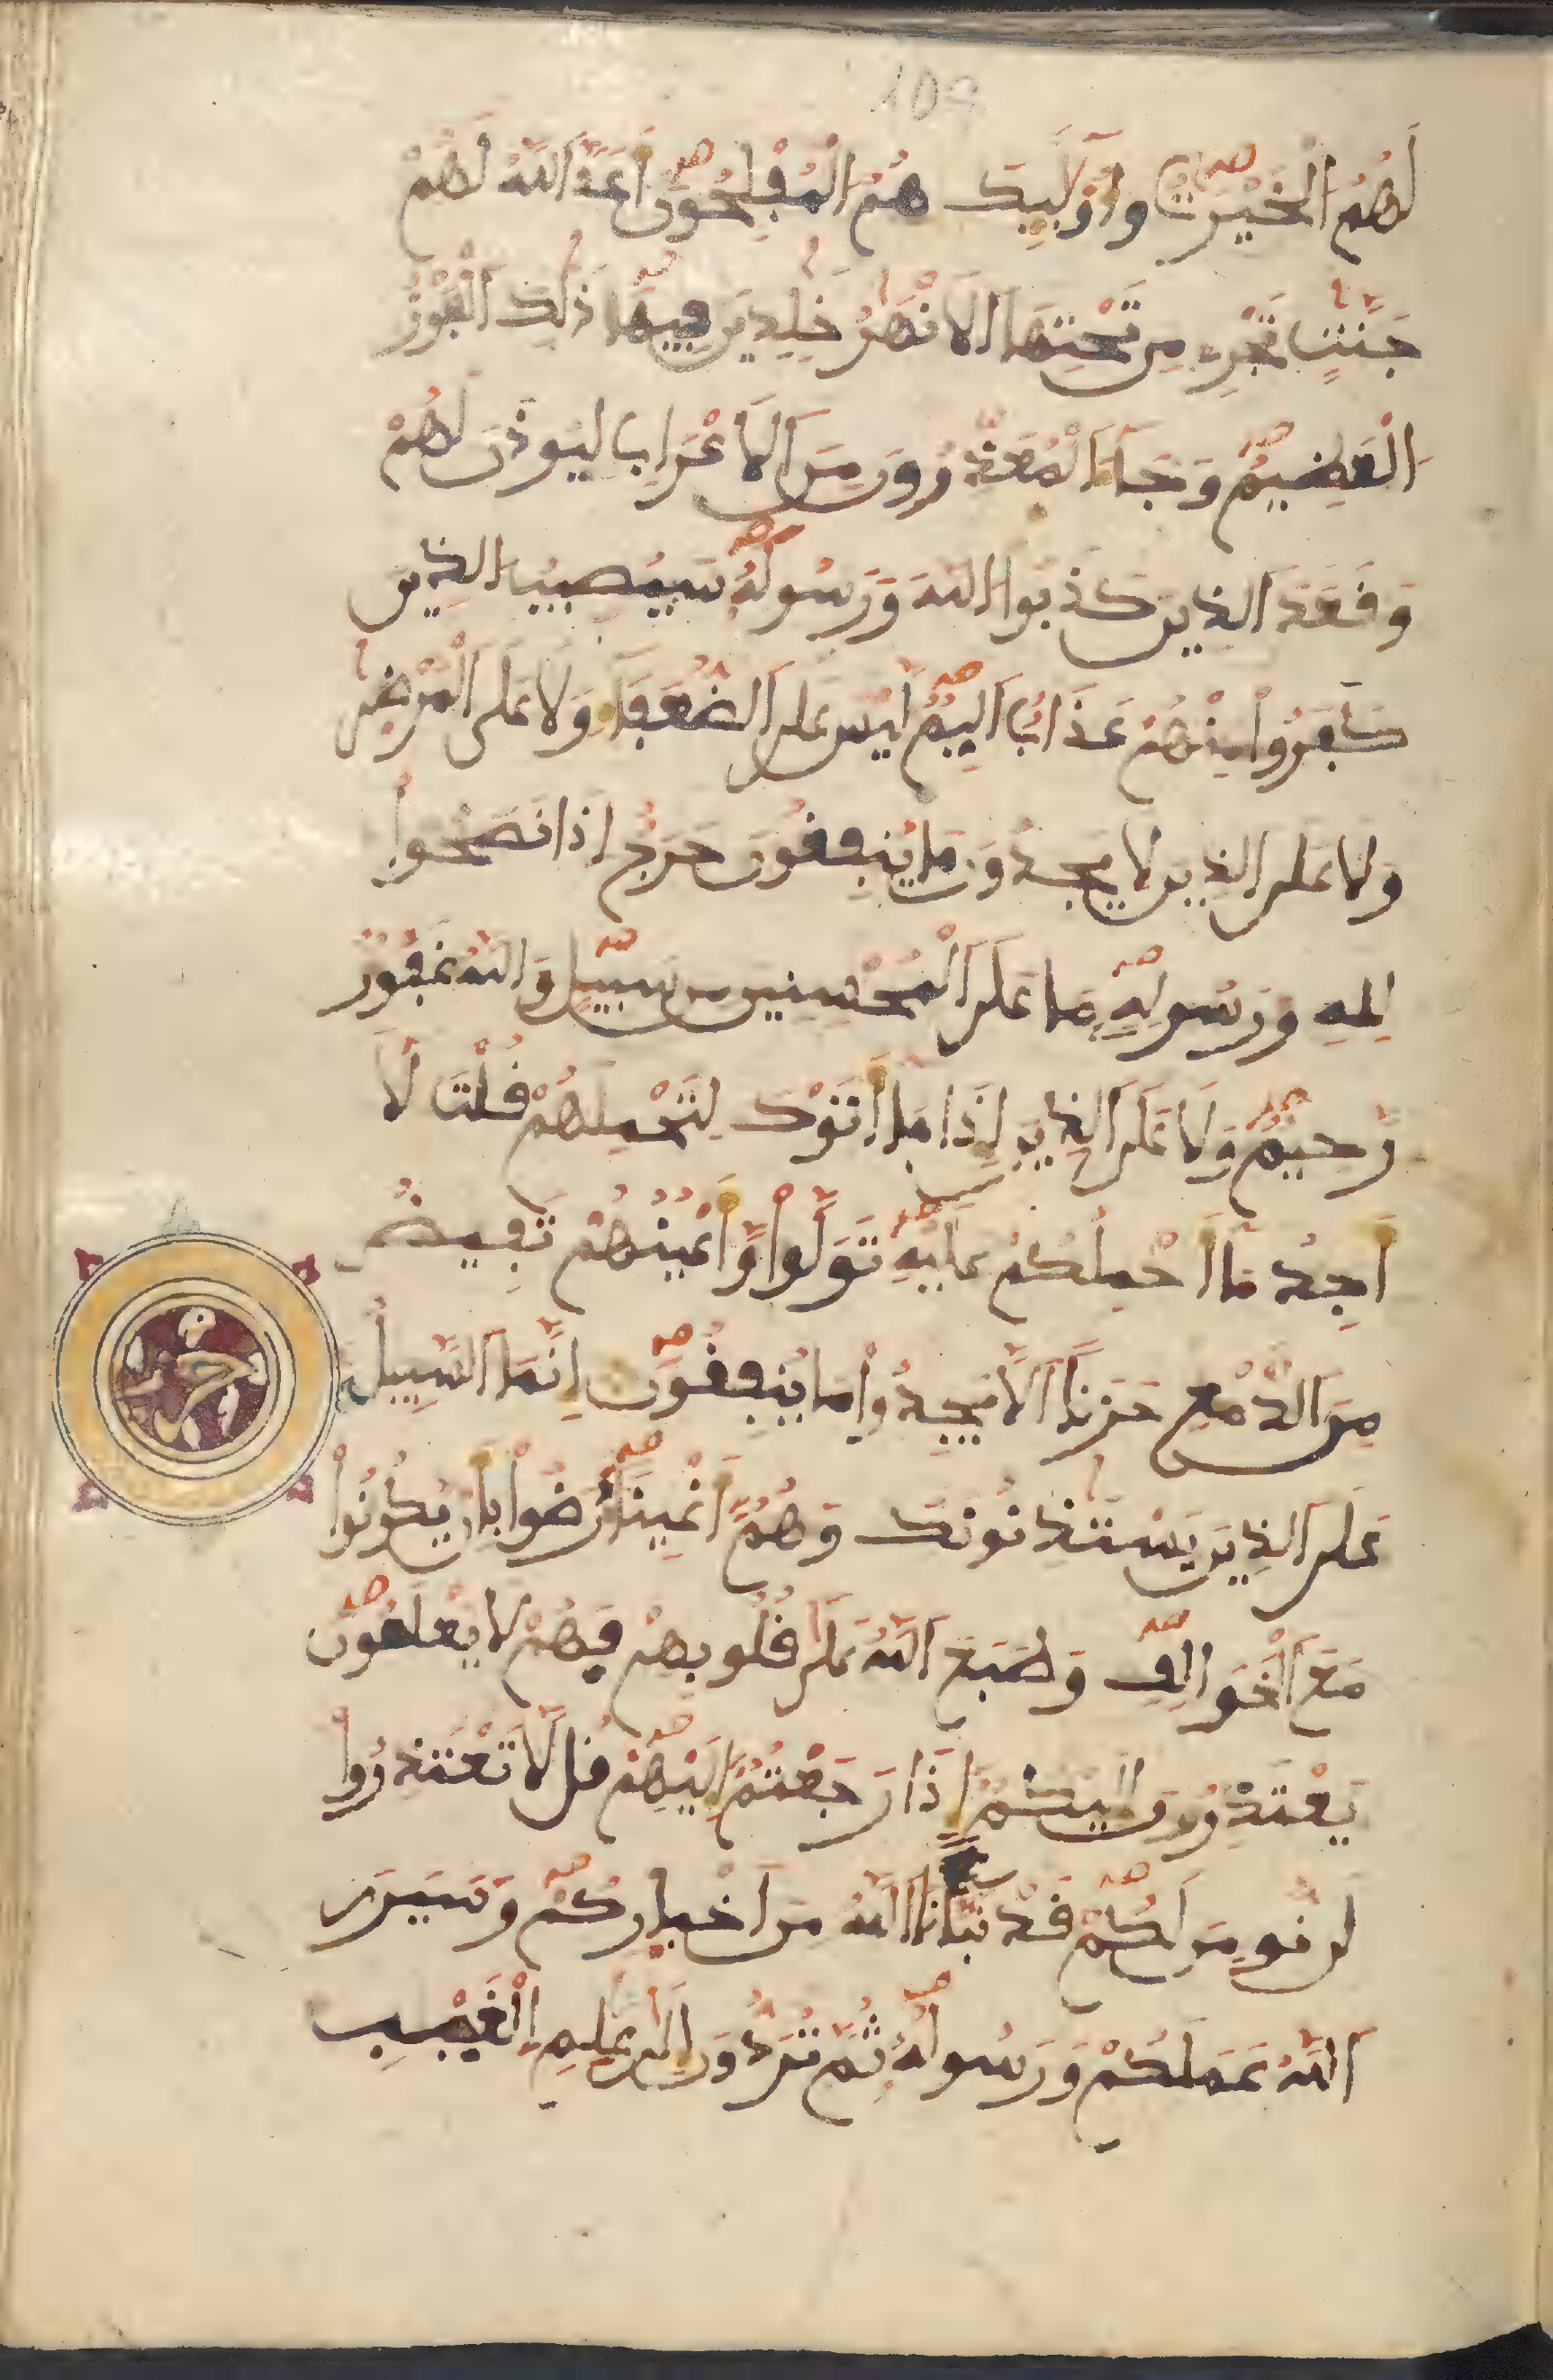 109
لَهُمُ الْخَيْرَٰتُ وَأُوْلَٰٓئِكَ هُمُ الْمُفْلِحُونَ أَعَدَّ اَللَّهُ لَهُمْ
جَنَّٰتٍ تَجْرِے مِن تَحْتِهَا اَلَانْهَٰرُ خَٰلِدِينَ فِيهَا ذَٰلِكَ اَلْفَوْزُ
اُلْعَظِيمُ وَجَآءَ اَلْمُعَذِّرُونَ مِنَ اَلَاعْرَابِ لِيُوذَنَ لَهُمْ
وَقَعَدَ اَلذِينَ كَذَبُواْ اُللَّهَ وَرَسُولَهُۥ سَيُصِيبُ اُلذِينَ
كَفَرُواْ مِنْهُمْ عَذَابٌ اَلِيمٌ لَّيْسَ عَلَى اَلضُّعَفَآءِ وَلَا عَلَى اَلْمَرْضَىٰ
وَلَا عَلَى اَلذِينَ لَا يَجِدُونَ مَا يُنفِقُونَ حَرَجٌ اِذَا نَصَحُواْ
لِلهِ وَرَسُولِهِۦ مَا عَلَى اَلْمُحْسِنِينَ مِن سَبِيلٍ وَاللَّهُ غَفُورٌ
رَّحِيمٌ وَلَا عَلَى اَلذِينَ إِذَا مَا أَتَوْكَ لِتَحْمِلَهُمْ قُلْتَ لَا
أَجِدُ مَا أَحْمِلُكُمْ عَلَيْهِ تَوَلَّواْ وَّأَعْيُنُهُمْ تَفِيضُ
مِنَ اَلدَّمْعِ حَزَناً اَلَّا يَجِدُواْ مَا يُنفِقُونَ إِنَّمَا اَلسَّبِيلُ
عَلَى اَلذِينَ يَسْتَٰذِنُونَكَ وَهُمُۥ أَغْنِيَآءُ رَضُواْ بِأَن يَكُونُواْ
مَعَ اَلْخَوَالِفِ وَطَبَعَ اَللَّهُ عَلَىٰ قُلُوبِهِمْ فَهُمْ لَا يَعْلَمُونَ
يَعْتَذِرُونَ إِلَيْكُمُۥ إِذَا رَجَعْتُمُۥ إِلَيْهِمْ قُل لَّا تَعْتَذِرُواْ
لَن نُّومِنَ لَكُمْ قَدْ نَبَّأَنَا اَللَّهُ مِنَ اَخْبَارِكُمْ وَسَيَرَى
اَللَّهُ عَمَلَكُمْ وَرَسُولُهُۥ ثُمَّ تُرَدُّونَ إِلَىٰ عَٰلِمِ اِلْغَيْبِ